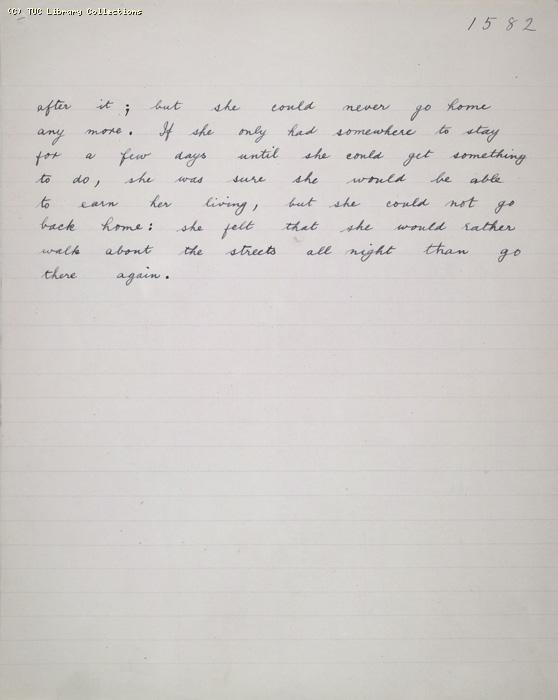 (C) TUC Library Collections
1582
after it; but she could never go home
any more. If she only had somewhere to stay
for a few days until she could get something
to do, she was sure she would be able
to earn her living, but she could not go
back home: she felt that she would rather
walk about the streets all night than go
there again.